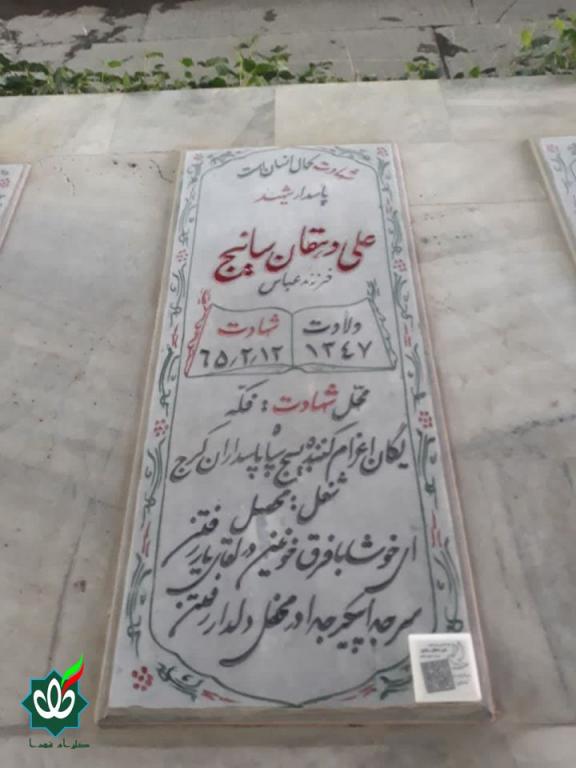 شهادت کمال انسان است
پاسدار شهید
علی دهقان سانیج
فرزند عباس
ولادت شهادت
۱۳۴۷ ۶۵/۲/۱۲
محل شهادت: فکه
یگان اعزام کننده بسیج سپاه پاسداران کرج
شغل: محصل
ای خوشا با فرق خونین در لقای یار رفتن
سر جدا پیکر جدا در محفل دلدار رفتن
گلزار شهدا